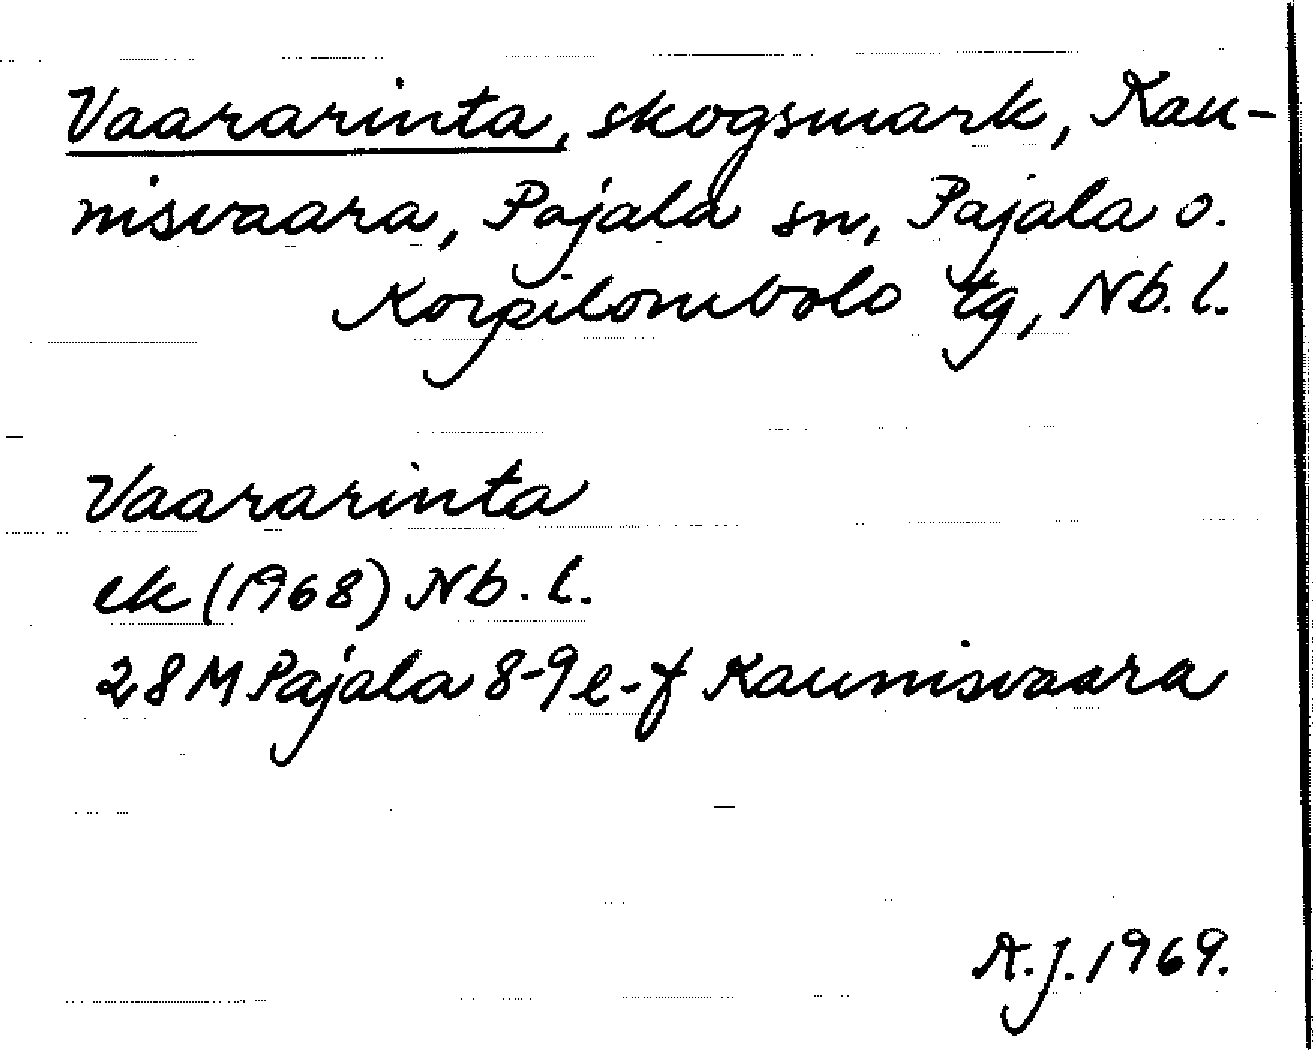 Vaararinta, skogsmark, Kau-
nisvaara, Pajala sn, Pajala o.
Korpilombolo tg, Nb. l.
Vaararinta
ek (1968) Nb. l.
28 M Pajala 8-9 e-f Kaunisvaara
A.J. 1969.